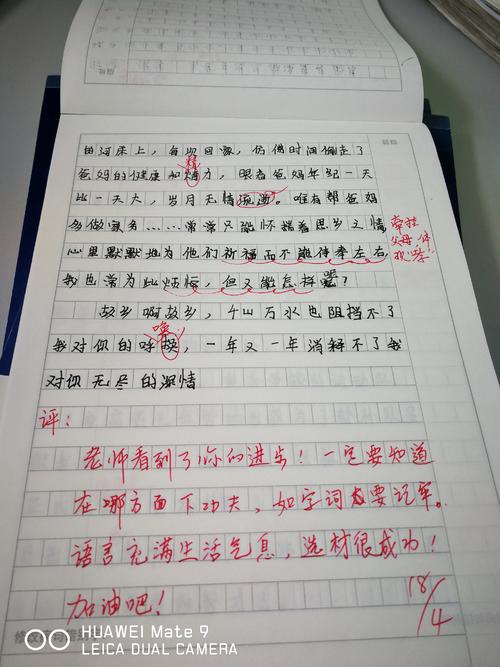 由河床上，每次回家，仿佛时间偷走了
爸妈的健康和情力，眼看爸妈年纪一天
精
比一天大，岁月无情流逝。唯有帮爸妈
多做家务……常常只能怀揣着思乡之情
心里默默地为他们祈福而不能侍奉左右
牵挂
父母，体
现"孝"
我也常为此烦恼，但又能怎样呢？
故乡啊故乡，千山万水也阻挡不了
唤
我对你的呼换，一年又一年消释不了我
对你无尽的深情
评：
老师看到了你的进步！一定要知道
在哪方面下功夫，如字词要记牢。
语言充满生活气息，选材很成功！
加油吧！
18/4
HUAWEI Mate 9
LEICA DUAL CAMERA